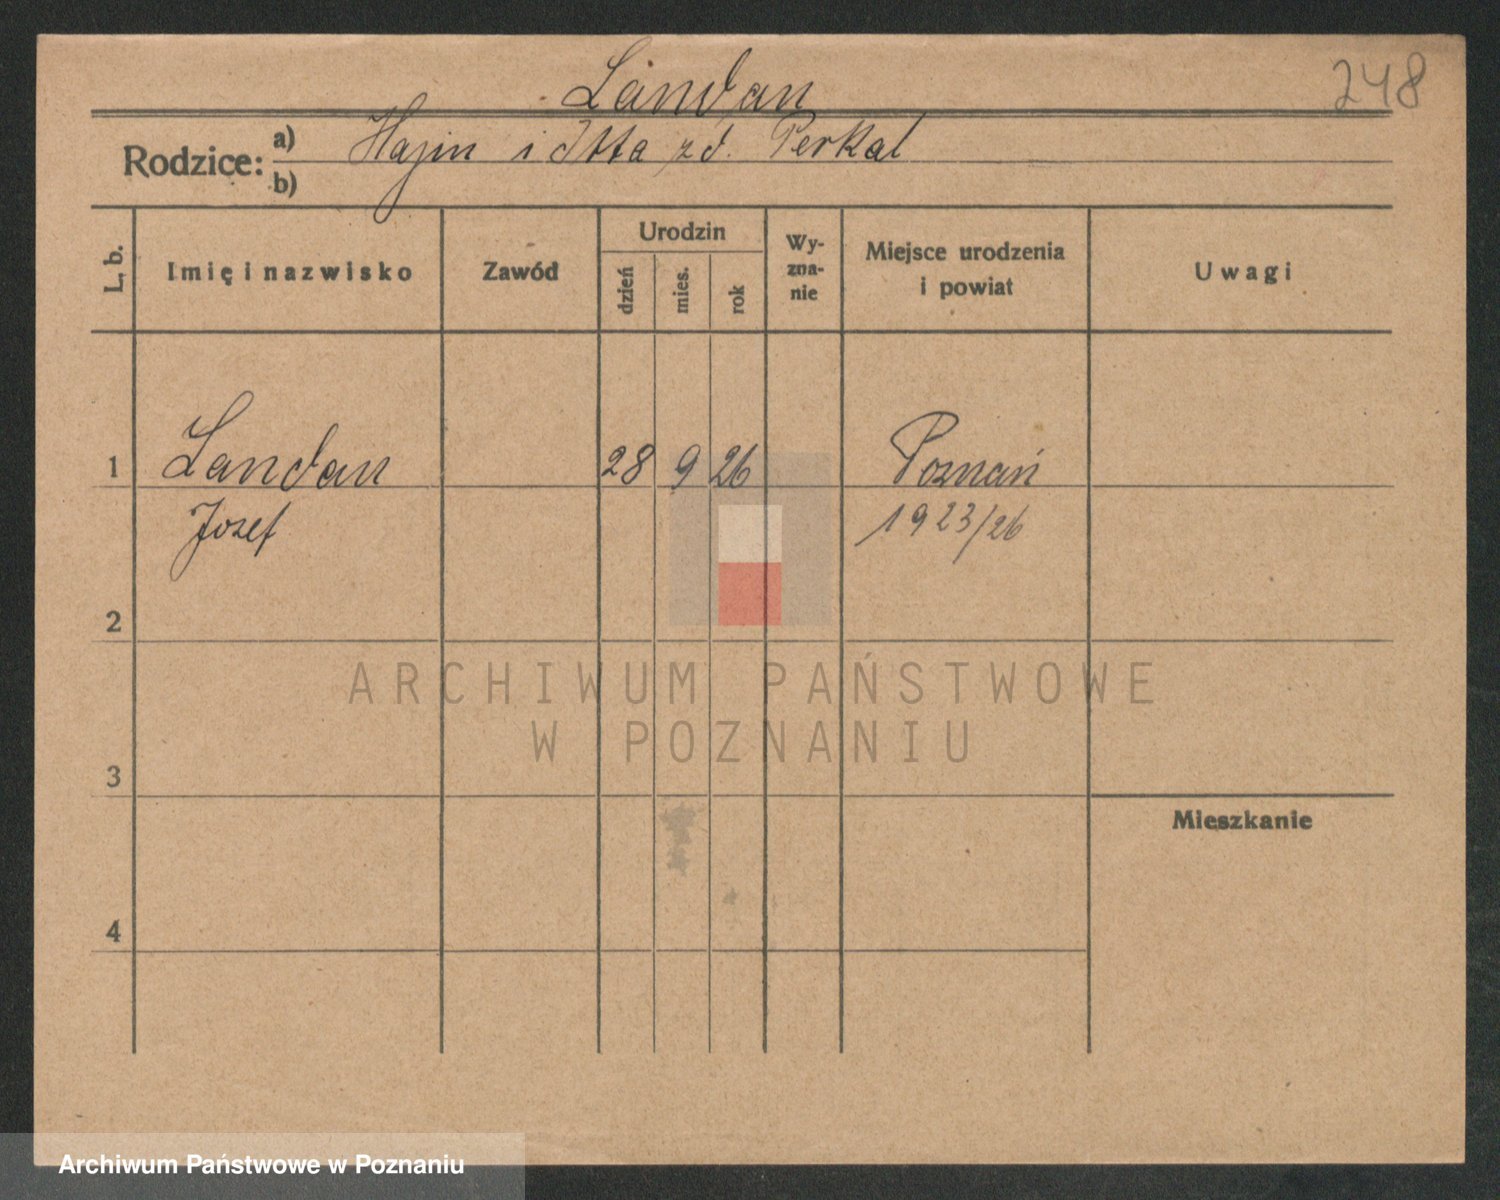 248
Landau
Rodzice: a) Hajm i Itta zd. Perkal
b)
L. b.
Imię i nazwisko
Zawód
Urodzin
dzień
mies.
rok
Wy-
zna-
nie
Miejsce urodzenia
i powiat
Uwagi
1 Landau 28 9 26 Poznań
Jozef 1923/26
2
3
4
Mieszkanie
ARCHIWUM PAŃSTWOWE
W POZNANIU
Archiwum Państwowe w Poznaniu